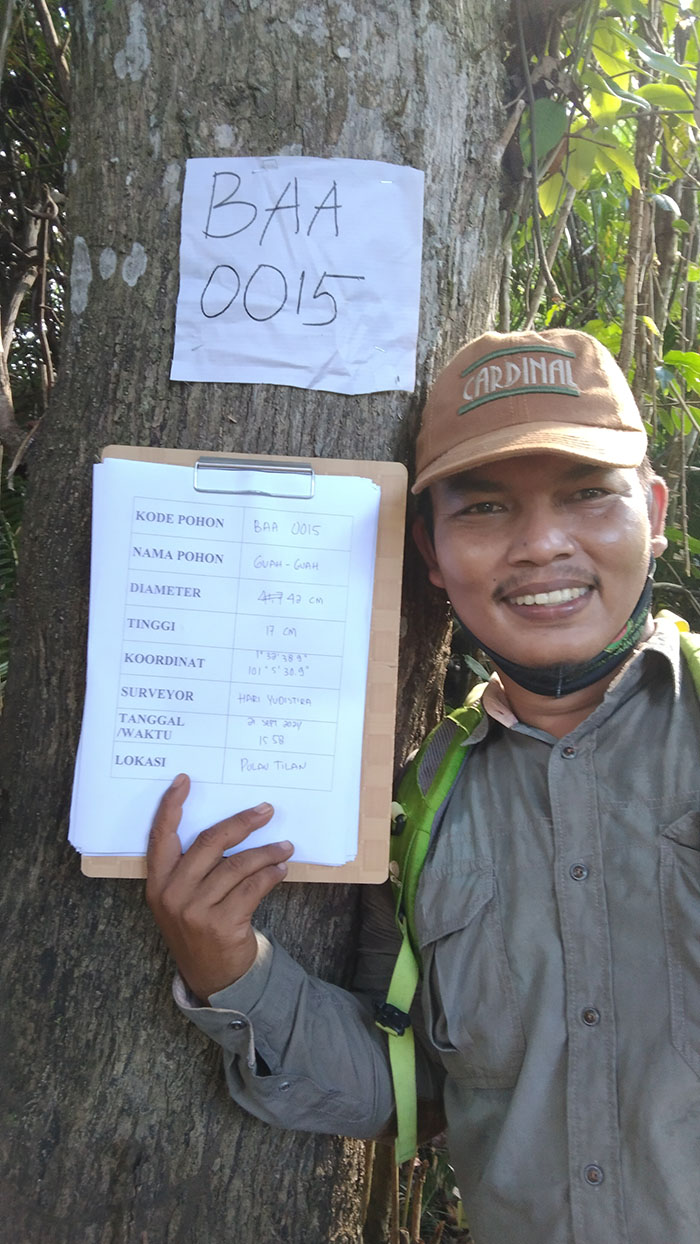 BAA
0015
CARDINAL
KODE POHON BAA 0015
NAMA POHON GUAH - GUAH
DIAMETER 42 CM
TINGGI 17 CM
KOORDINAT 1° 37' 38.9"
101° 5' 30.9"
SURVEYOR HARI YUDISTIRA
TANGGAL 21 SEPT 2021
/WAKTU 15 58
LOKASI PULAU TILAN